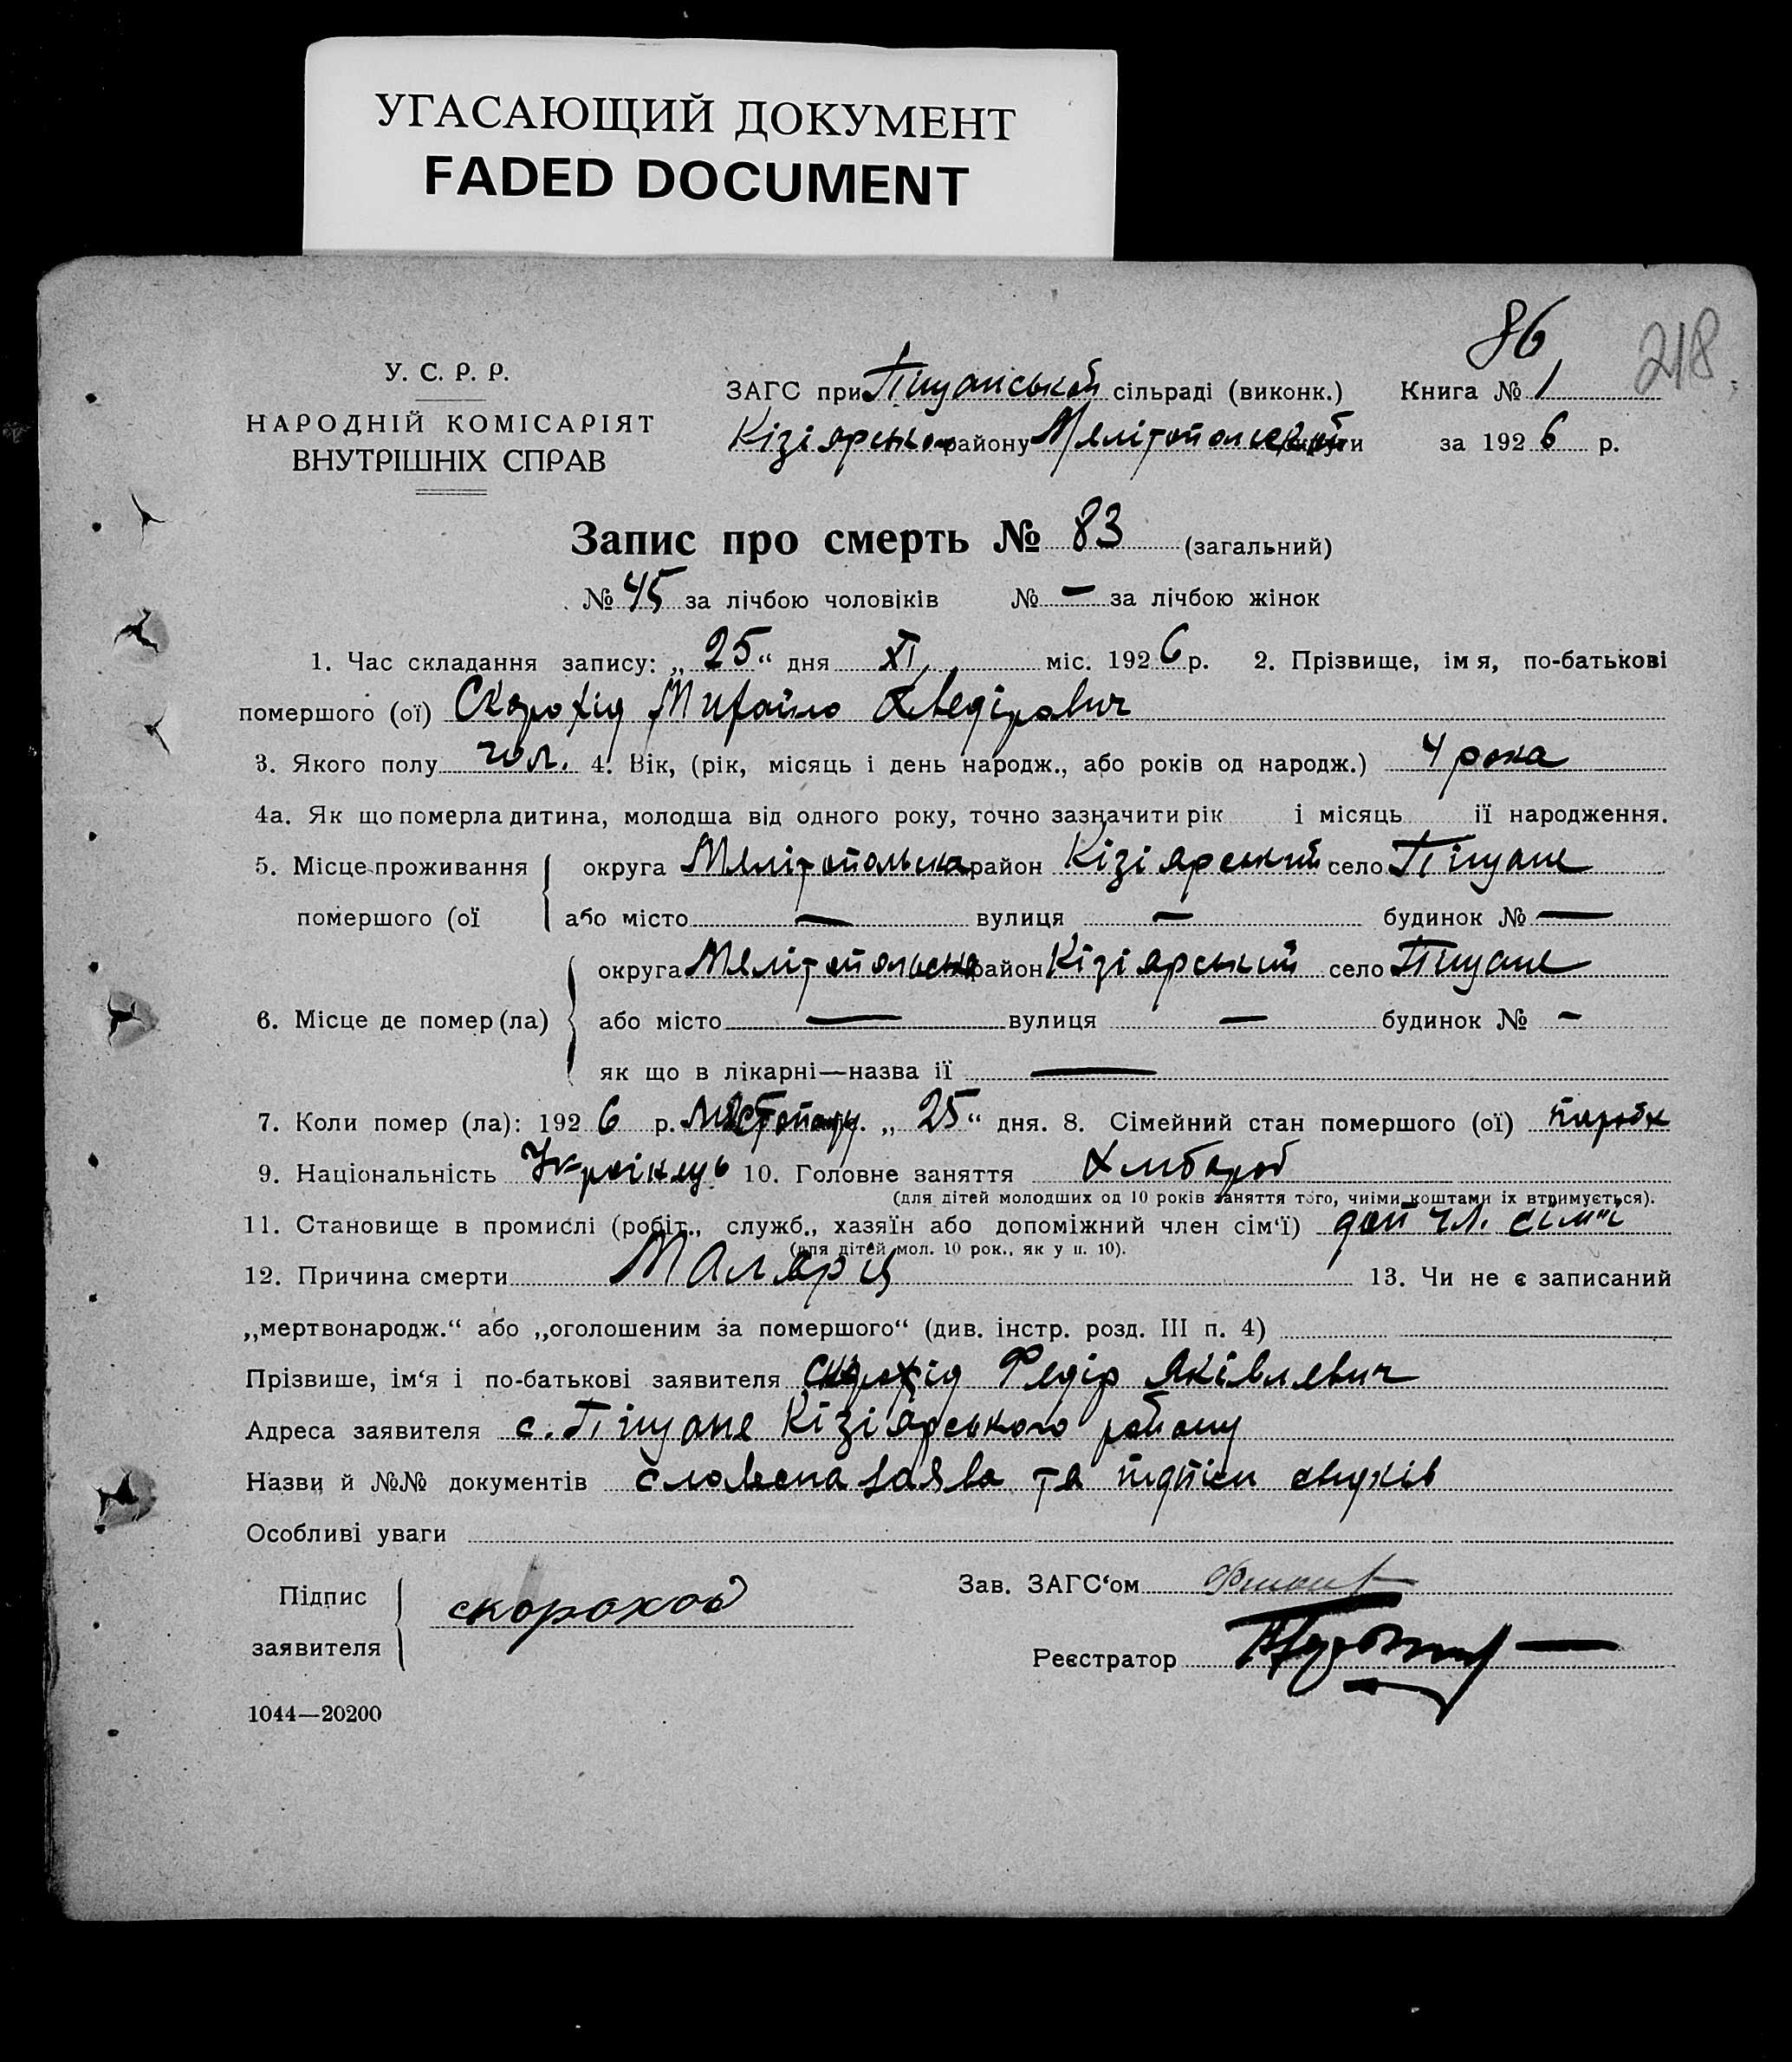 УГАСАЮЩИЙ ДОКУМЕНТ
FADED DOCUMENT
86
218
У. С. Р. Р.
НАРОДНІЙ КОМІСАРІЯТ
ВНУТРІШНІХ СПРАВ
ЗАГС при Піщанській сільраді (виконк.) Книга № 1
Кізіярсько району Мелітопольської округи за 1926 р.
Запис про смерть № 83 (загальний)
№ 45 за лічбою чоловіків № — за лічбою жінок
1. Час складання запису: „25“ дня XI міс. 1926 р. 2. Прізвище, імя, по-батькові
помершого (ої) Скорохід Михайло Хведірович
3. Якого полу чол. 4. Вік, (рік, місяць і день народж., або років од народж.) 4 рока
4а. Як що померла дитина, молодша від одного року, точно зазначити рік і місяць її народження.
5. Місце проживання округа Мелітопольська район Кізіярський село Піщане
помершого (ої або місто — вулиця — будинок № —
округа Мелітопольська район Кізіярський село Піщане
6. Місце де помер (ла) або місто — вулиця — будинок № —
як що в лікарні—назва її —
7. Коли помер (ла): 1926 р. листопаду „25“ дня. 8. Сімейний стан помершого (ої) паробк
9. Національність Українець 10. Головне заняття Хлібороб
(для дітей молодших од 10 років заняття того, чиїми коштами їх втримується).
11. Становище в промислі (робіт., служб., хазяїн або допоміжний член сім‘ї) доп чл. сім"ї
(для дітей мол. 10 рок., як у п. 10).
12. Причина смерти Малярія 13. Чи не є записаний
„мертвонародж.“ або „оголошеним за помершого“ (див. інстр. розд. III п. 4)
Прізвише, ім‘я і по-батькові заявителя Скорохід Федір Яківлевич
Адреса заявителя с. Піщане Кізіярського району
Назви й №№ документів словесна заява та підписи свидків
Особливі уваги
Підпис
заявителя скороход
Зав. ЗАГС‘ом
Реєстратор
1044—20200